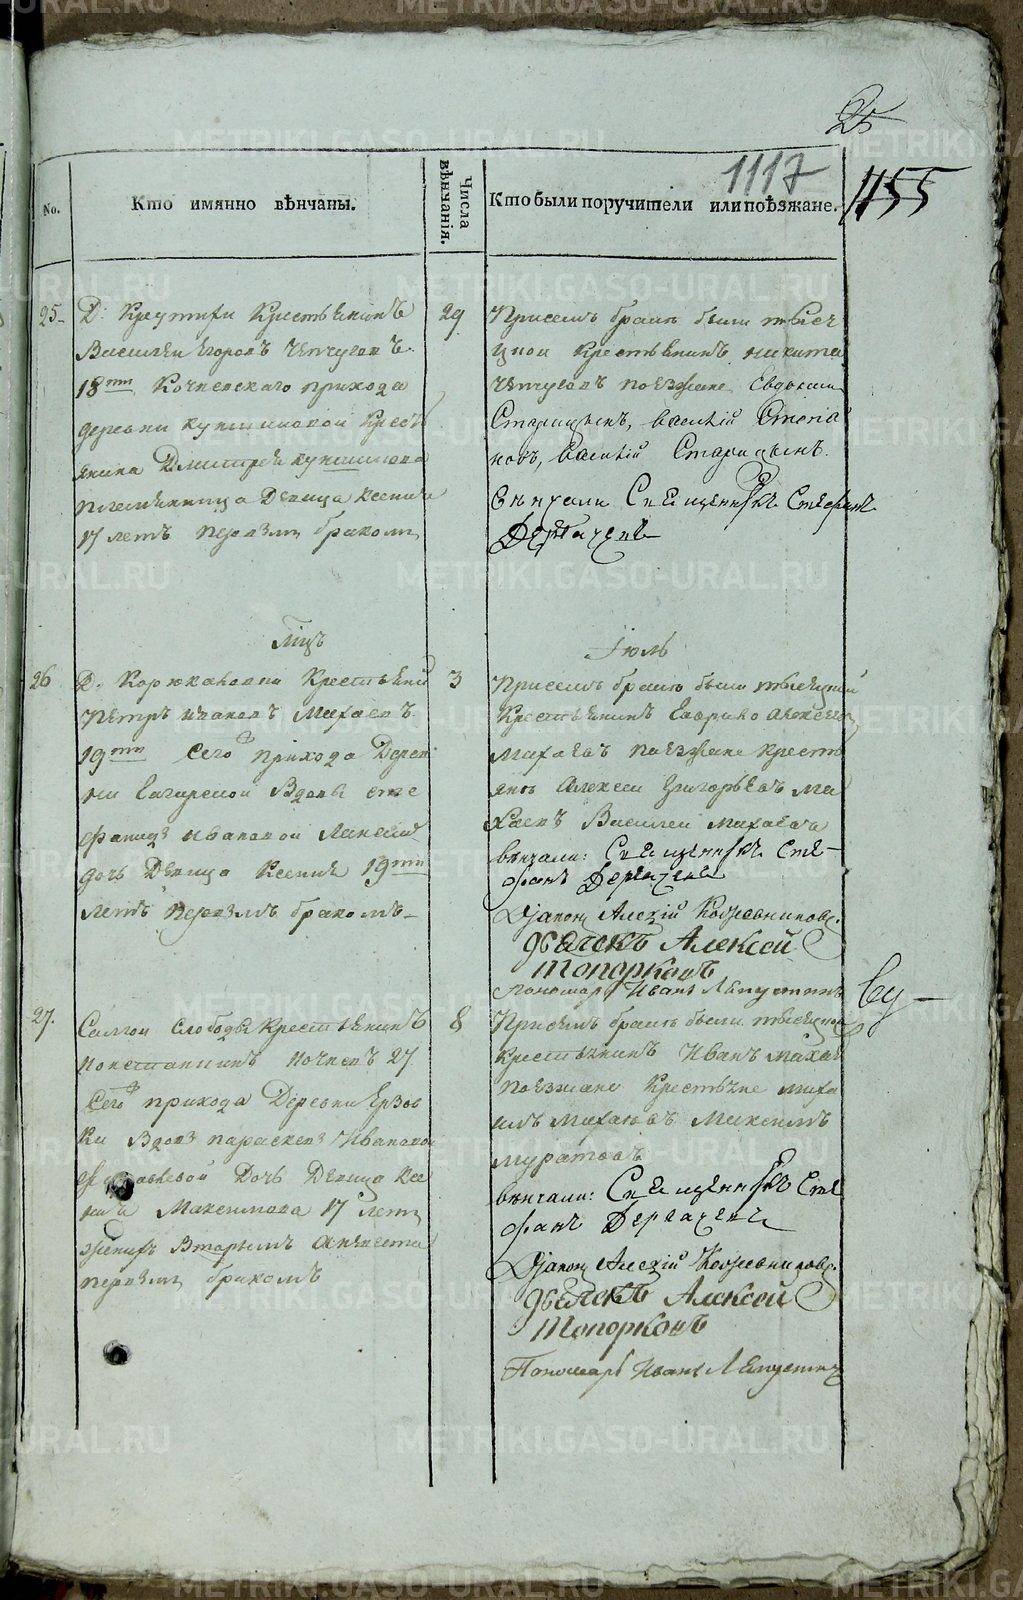 25
1117
1155
No.
Кто имянно вѣнчаны.
Числа вѣнчанія.
Кто были поручители или поѣзжане.
25
Крестьянинъ
Василей Егоровъ Чепчуговъ
18ти Кочневскаго прихода
деревни
Дмитрея
племянница Девица Ксения
17 летъ первымъ бракомъ
29
Присемъ браке были тысе
цкой Крестьянинъ никита
Чепчуговъ поезжане Евдоким
Старицынъ, василій Степа
новъ, василій Старицынъ.
Вѣнчали Священникъ Стефанъ
Дергачевъ
Мцъ
Іюль
26
Д. Коржавиной Крестьянин
Петръ Ивановъ Махаевъ
19ти Сего прихода Дерев
ни Вдовы сте
фаниды Ивановой
дочь Девица Ксения 19ти
летъ первымъ бракомъ
3
Присемъ браке были тысецкий
Крестьянинъ Алексеев
Махаевъ поезжане кресть
яне Алексей Григорьевъ Ма
хаевъ Василей Махаевъ
вѣнчали: Священникъ Сте-
фанъ Дергачевъ
Діаконъ Алексій Кожевниковъ.
дьячекъ Алексей
Топорковъ
Пономарь Иванъ Лепустинъ
27.
Самой слободы Крестьянинъ
Константинъ Кочневъ 27
Сего прихода Деревни Ерзов
ки Вдовы параскевы Ивановой
Дочь Девица Ксе
ния Максимова 17 летъ
жених Вторымъ а невеста
первымъ бракомъ
8
Присемъ браке были тысецкой
крестьянинъ Иванъ Махаев
поезжане Крестьяне миха
илъ Махаевъ Максимъ
муратовъ
вѣнчали: Священникъ Сте
фанъ Дергачевъ
Діаконъ Алексій Кожевниковъ.
дьячекъ Алексей
Топорковъ
Пономарь Иванъ Лепустинъ